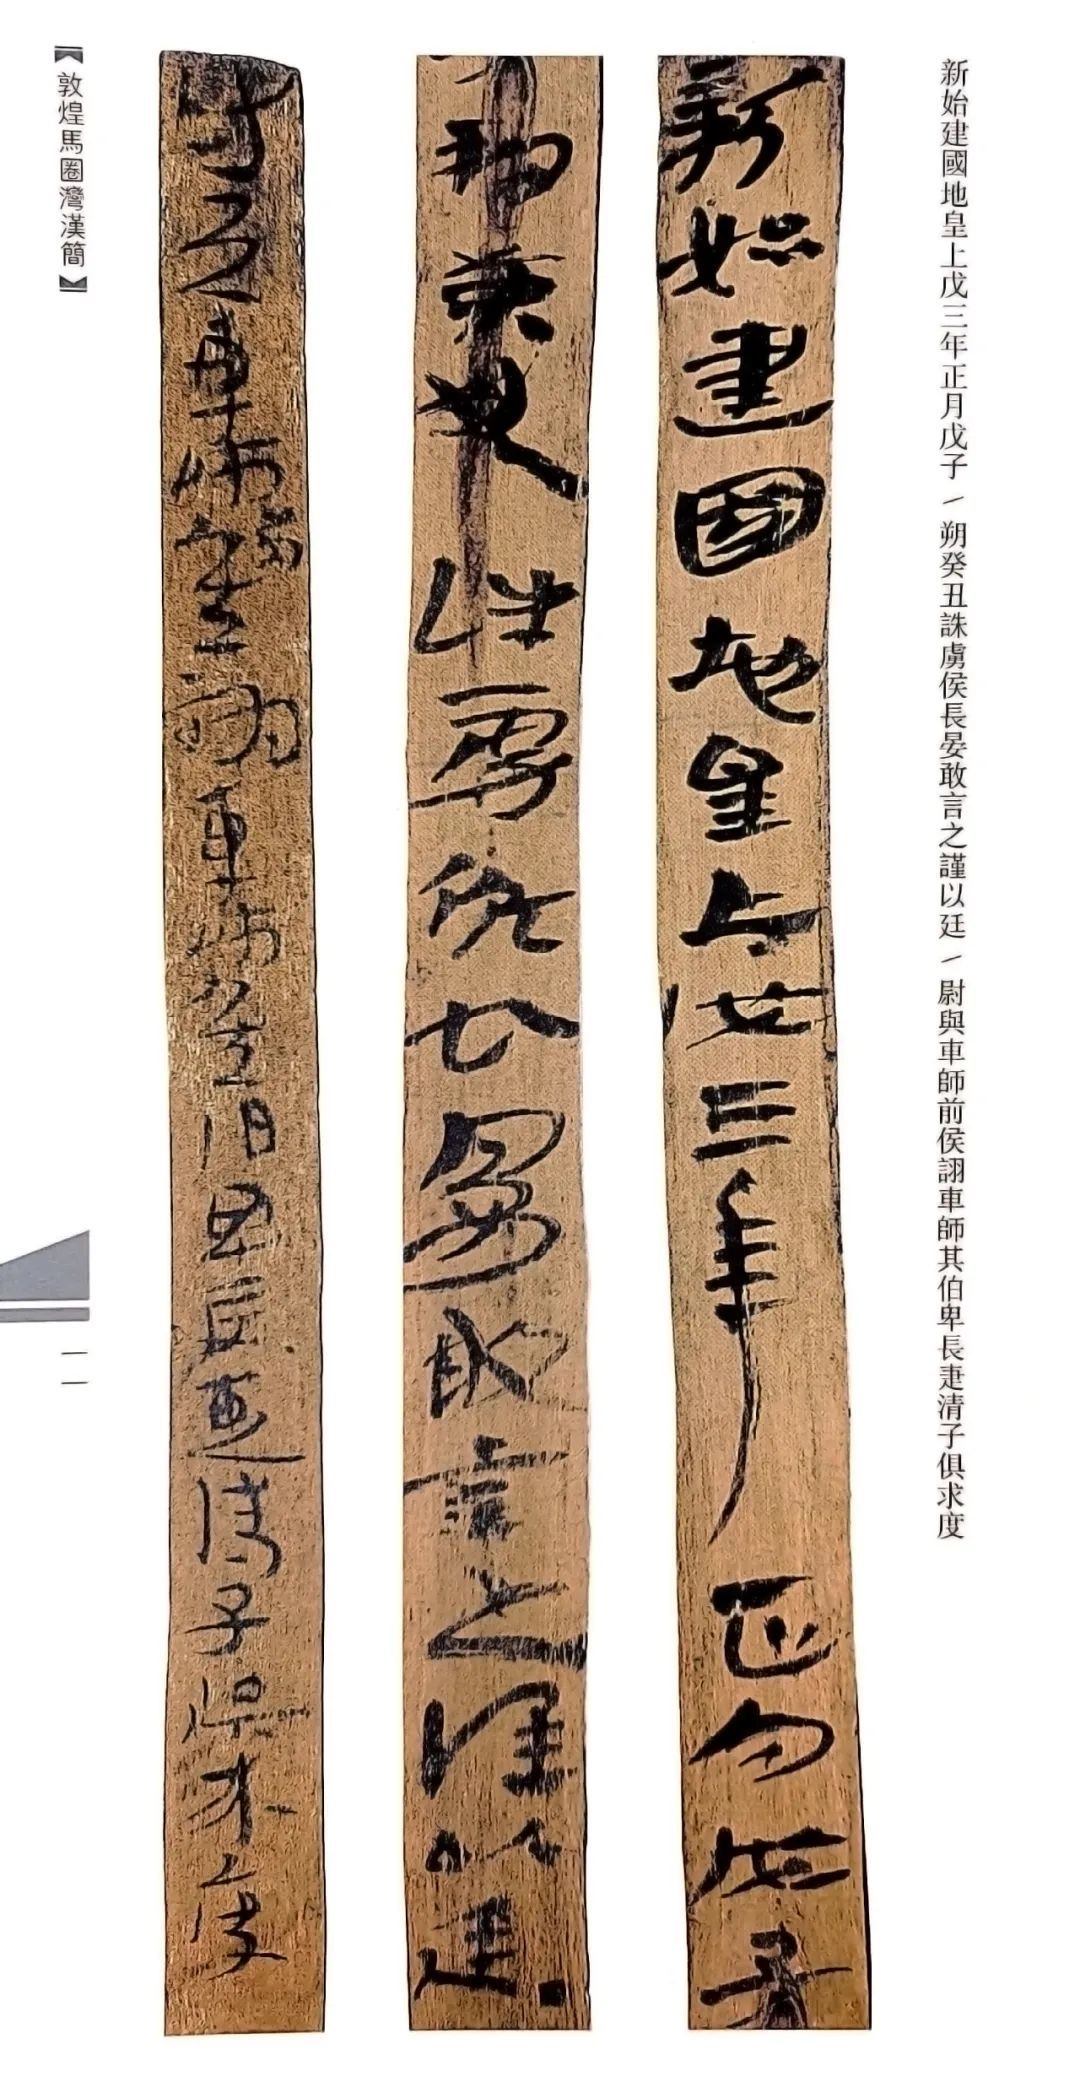 新始建國地皇上戊三年正月戊子/朔癸丑誅虜侯長晏敢言之謹以廷/尉與車師前侯詡車師其伯卑長疌清子俱求度
新始建國地皇上戊三年正月戊子
朔癸丑誅虜侯長晏敢言之謹以廷
尉與車師前侯詡車師其伯卑長疌清子俱求度
【敦煌馬圈灣漢簡】
一一